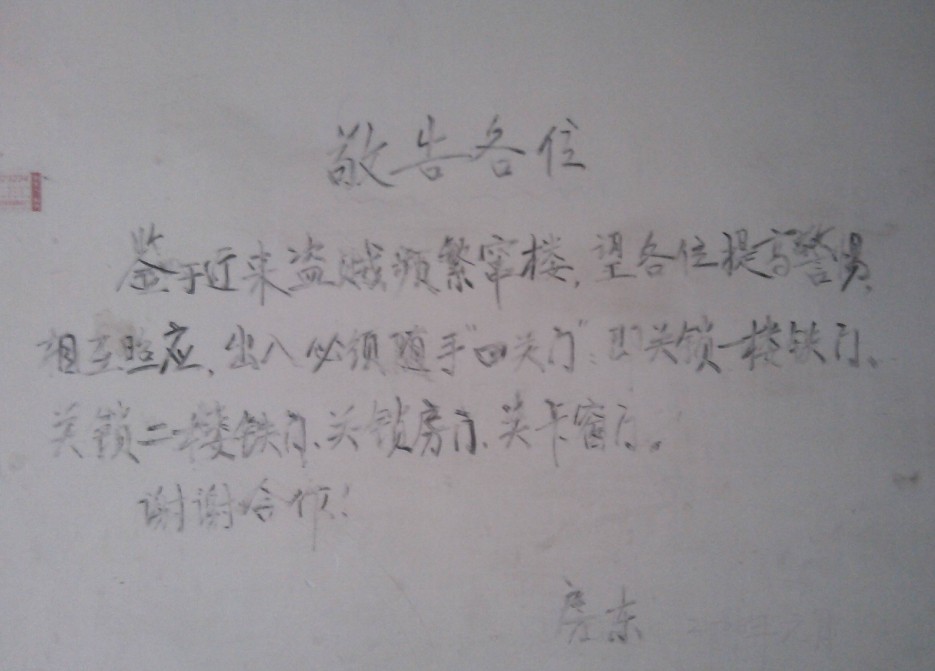 敬告各位
鉴于近来盗贼频繁窜楼,望各位提高警惕,
相互照应、出入必须随手"四关门":即关锁一楼铁门、
关锁二楼铁门、关锁房门、关卡窗门。
谢谢合作!
房东